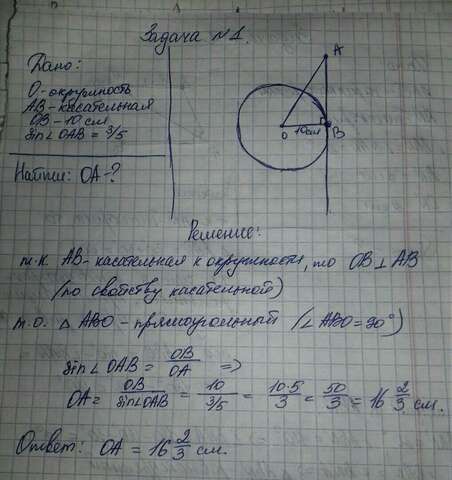 Задача №1.
Дано:
О-окружность
АВ-касательная
ОВ-10см
sin∠OAB = 3/5
Найти: ОА-?
А
О
10см
В
Решение:
т.к. АВ-касательная к окружности, то ОВ⊥АВ
(по свойству касательной)
т.о. △ АВО-прямоугольный (∠АВО=90°)
sin∠OAB = OB/OA =>
OA = OB/sin∠OAB = 10/(3/5) = 10·5/3 = 50/3 = 16 2/3 см.
Ответ: ОА = 16 2/3 см.